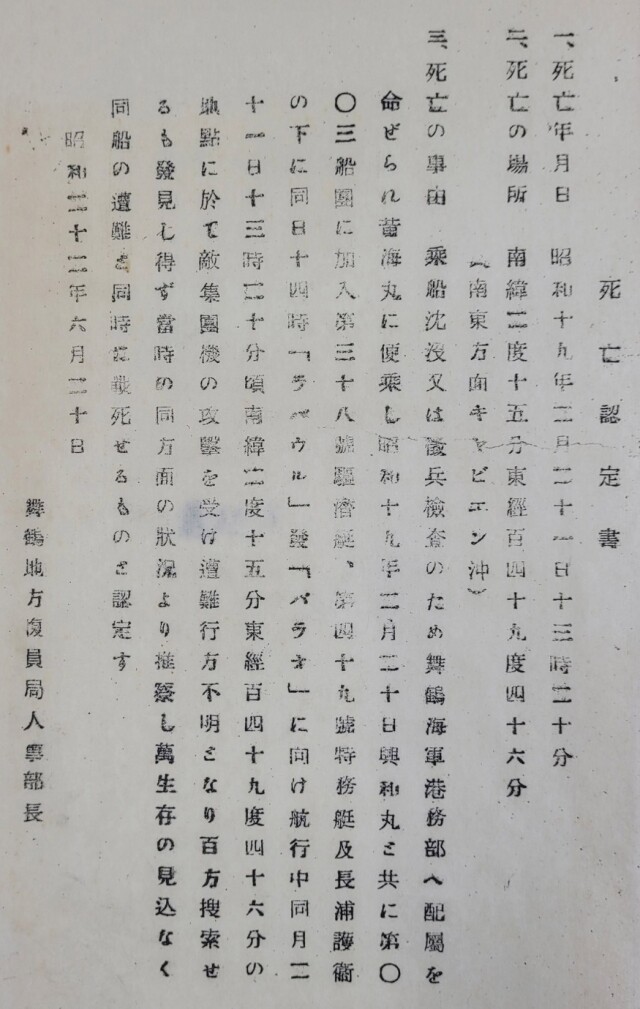 死亡認定書
一、死亡年月日　昭和十九年二月二十一日十三時二十分
二、死亡の場所　南緯二度十五分東經百四十九度四十六分
（南東方面キャビエン沖）
三、死亡の事由　乘船沈沒又は徴兵檢査のため舞鶴海軍港務部へ配屬を
命ぜられ蓄海丸に便乘し昭和十九年二月二十日興和丸と共に第〇
〇三船團に加入第三十八號驅潛艇、第四十九號特務艇及長浦護衞
の下に同日十四時「ラバウル」發「パラオ」に向け航行中同月二
十一日十三時二十分頃南緯二度十五分東經百四十九度四十六分の
地點に於て敵集團機の攻擊を受け遭難行方不明となり百方搜索せ
るも發見し得ず當時の同方面の狀況より推察し萬生存の見込なく
同船の遭難と同時に戰死せるものと認定す
昭和二十二年六月二十日
舞鶴地方復員局人事部長